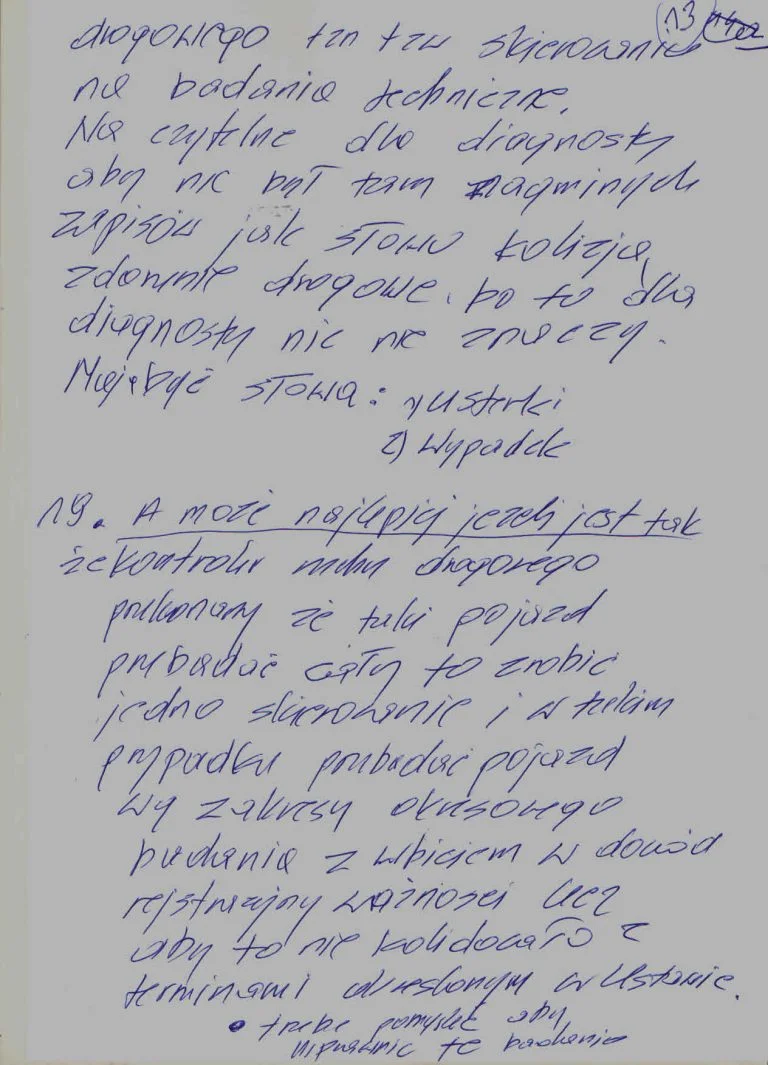 13
drogowego tzn tzw skierowanie
na badania techniczne.
Na czytelne dla diagnosty
aby nie był tam nagminych
zapisów jak słowo kolizja,
zdarznie drogowe. bo to dla
diagnosty nic nie znaczy.
Mają być słowa: 1) Usterki
2) Wypadek
19. A może najlepiej jeżeli jest tak
że kontroler ruchu drogorego
przekonany że taki pojazd
przebadać cały to zrobić
jedno skierowanie i w takim
przypadku przebadać pojazd
wy zakresy okresowego
badania z wbiciem w dowód
rejstracyjny ważności lecz
aby to nie kolidowało z
terminami określonym w Ustawie.
• trzeba pomyśleć aby
usprawnić te badania